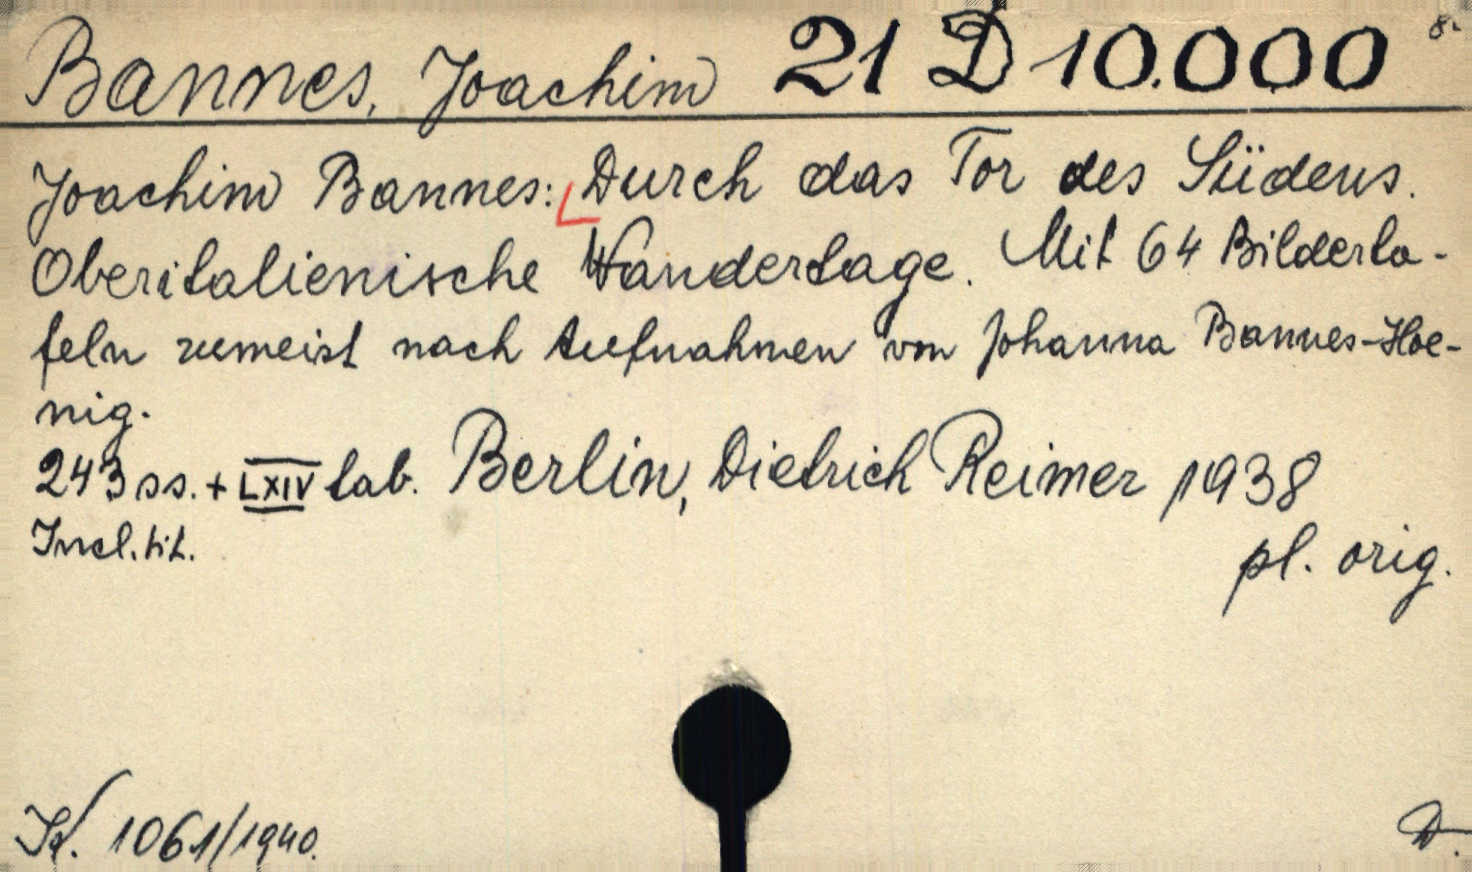 Bannes, Joachim 21 D 10.000 8.
Joachim Bannes: Durch das Tor des Südens.
Oberitalienische Wandertage. Mit 64 Bilderta-
feln zumeist nach Aufnahmen von Johanna Bannes-Hoe-
nig.
243 ss. + LXIV tab. Berlin, Dietrich Reimer 1938
Incl. tit.
pl. orig.
1061/1940.
D.